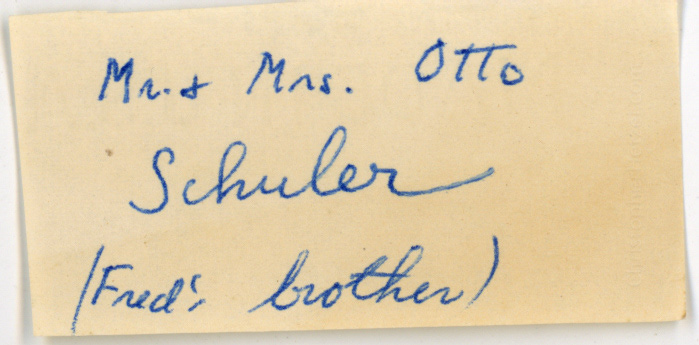 Mr. & Mrs. Otto
Schuler
(Fred's brother)